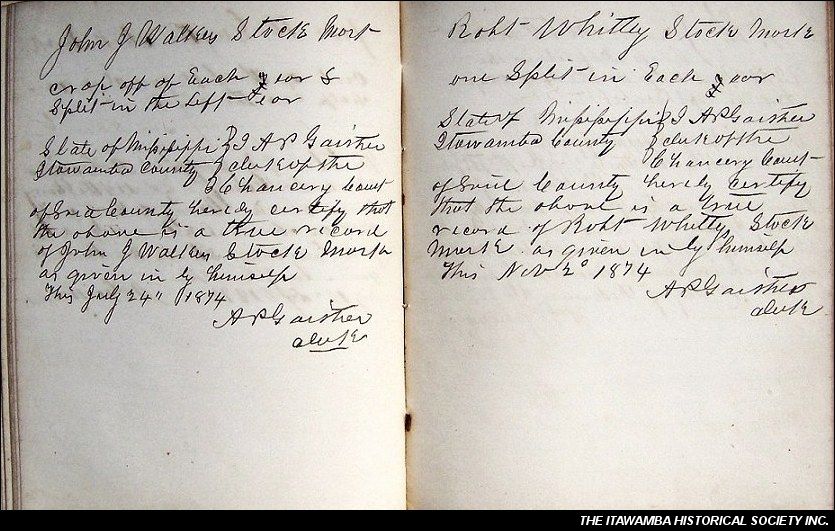 John J Walker Stock Mark
crop off of Each ear &
Split in the Left ear
State of Mississippi } I A P Gaither
Itawamba County } clerk of the
} Chancery Court
of Said County hereby certify that
the above is a true record
of John J Walker Stock Mark
as given in by himself
This July 24" 1874
A P Gaither
clerk
Robt Whitley Stock Mark
one Split in Each ear
State of Mississippi } I A P Gaither
Itawamba County } clerk of the
} Chancery Court
of Said County hereby certify
that the above is a true
record of Robt Whitley Stock
Mark as given in by himself
This Nov 2" 1874
A P Gaither
clerk
THE ITAWAMBA HISTORICAL SOCIETY INC.